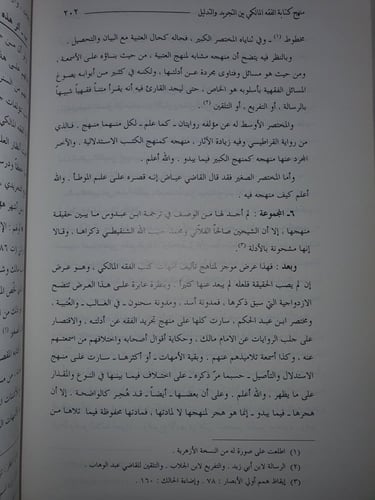 منهج كتابة الفقه المالكي بين التجريد والتدليل
٢٠٢
مخطوط (١) ـ وفي ثناياه المختصر الكبير ، فحاله كحال العتبية مع البيان والتحصيل .
وبالنظر فيه يتضح أن منهجه مشابه لمنهج العتبية ، من حيث بناؤه على الأسمعة ،
ومن حيث هو مسائل وفتاوى مجردة عن أدلتها ، ولكنه في كثير من أبوابه يصوغ
المسائل الفقهية بأسلوبه هو الخاص ، حتى ليجد القارئ فيه أنه يقرأ متناً فقهياً شبيهاً
بالرسالة ، أو التفريع ، أو التلقين (٢) .
والمختصر الأوسط له عن مؤلفه روايتان ـ كما علم ـ لكل منهما منهج . فالذي
من رواية القراطيسي وفيه زيادة الآثار ، منهجه كمنهج الكتب الاستدلالية . والآخر
المجرد عنها منهجه كمنهج الكبير فيما يبدو . والله أعلم .
وأما المختصر الصغير فقد قال القاضي عياض إنه قصره على علم الموطأ . والله
أعلم كيف منهجه فيه .
٦ـ المجموعة : لم أجد لها من الوصف في ترجمة ابن عبدوس ما يبين حقيقة
منهجها ، إلا أن الشيخين صالحاً الفلاّني ومحمد حبيب الله الشنقيطي ذكراها ، وقالا
إنها مشحونة بالأدلة (٣) .
وبعد : فهذا عرض موجز لمناهج تأليف أمهات كتب الفقه المالكي ، وهو عرض
إن لم يصب الحقيقة فلعله لم يبعد عنها كثيراً . وبنظرة عابرة على هذا العرض تتضح
الازدواجية التي سبق ذكرها ، فمدونة أسد ، ومدونة سحنون ـ في الغالب ـ والعتبية ،
ومختصر ابن عبد الحكم ، سارت كلها على منهج تجريد الفقه عن أدلته . والاقتصار
على جلب الروايات عن الامام مالك ، وحكاية أقوال أصحابه واختلافهم من أسمعتهم
عنه ، وكذا أسمعة تلاميذهم عنهم . وبقية الأمهات ـ أو أكثرها ـ سارت على منهج
الاستدلال والتأصيل ـ حسبما مرّ ذكره ـ على اختلاف فيما بينها في النوع والمقدار
على ما يظهر . والله أعلم . وعلى أن بعضها ـ أيضاً ـ قد هُجر كالواضحة . إلا أن
هجرها ـ فيما يبدو ـ إنما هو هجر لمنهجها لا لمادتها ، فمادتها محفوظة فيما تلاها من
(١) اطلعت على صورة له من النسخة الأزهرية .
(٢) الرسالة لابن أبي زيد . والتفريع لابن الجلاب . والتلقين للقاضي عبد الوهاب .
(٣) إيقاظ همم أولي الأبصار : ٧٨ . وإضاءة الحالك : ١٦٠ .